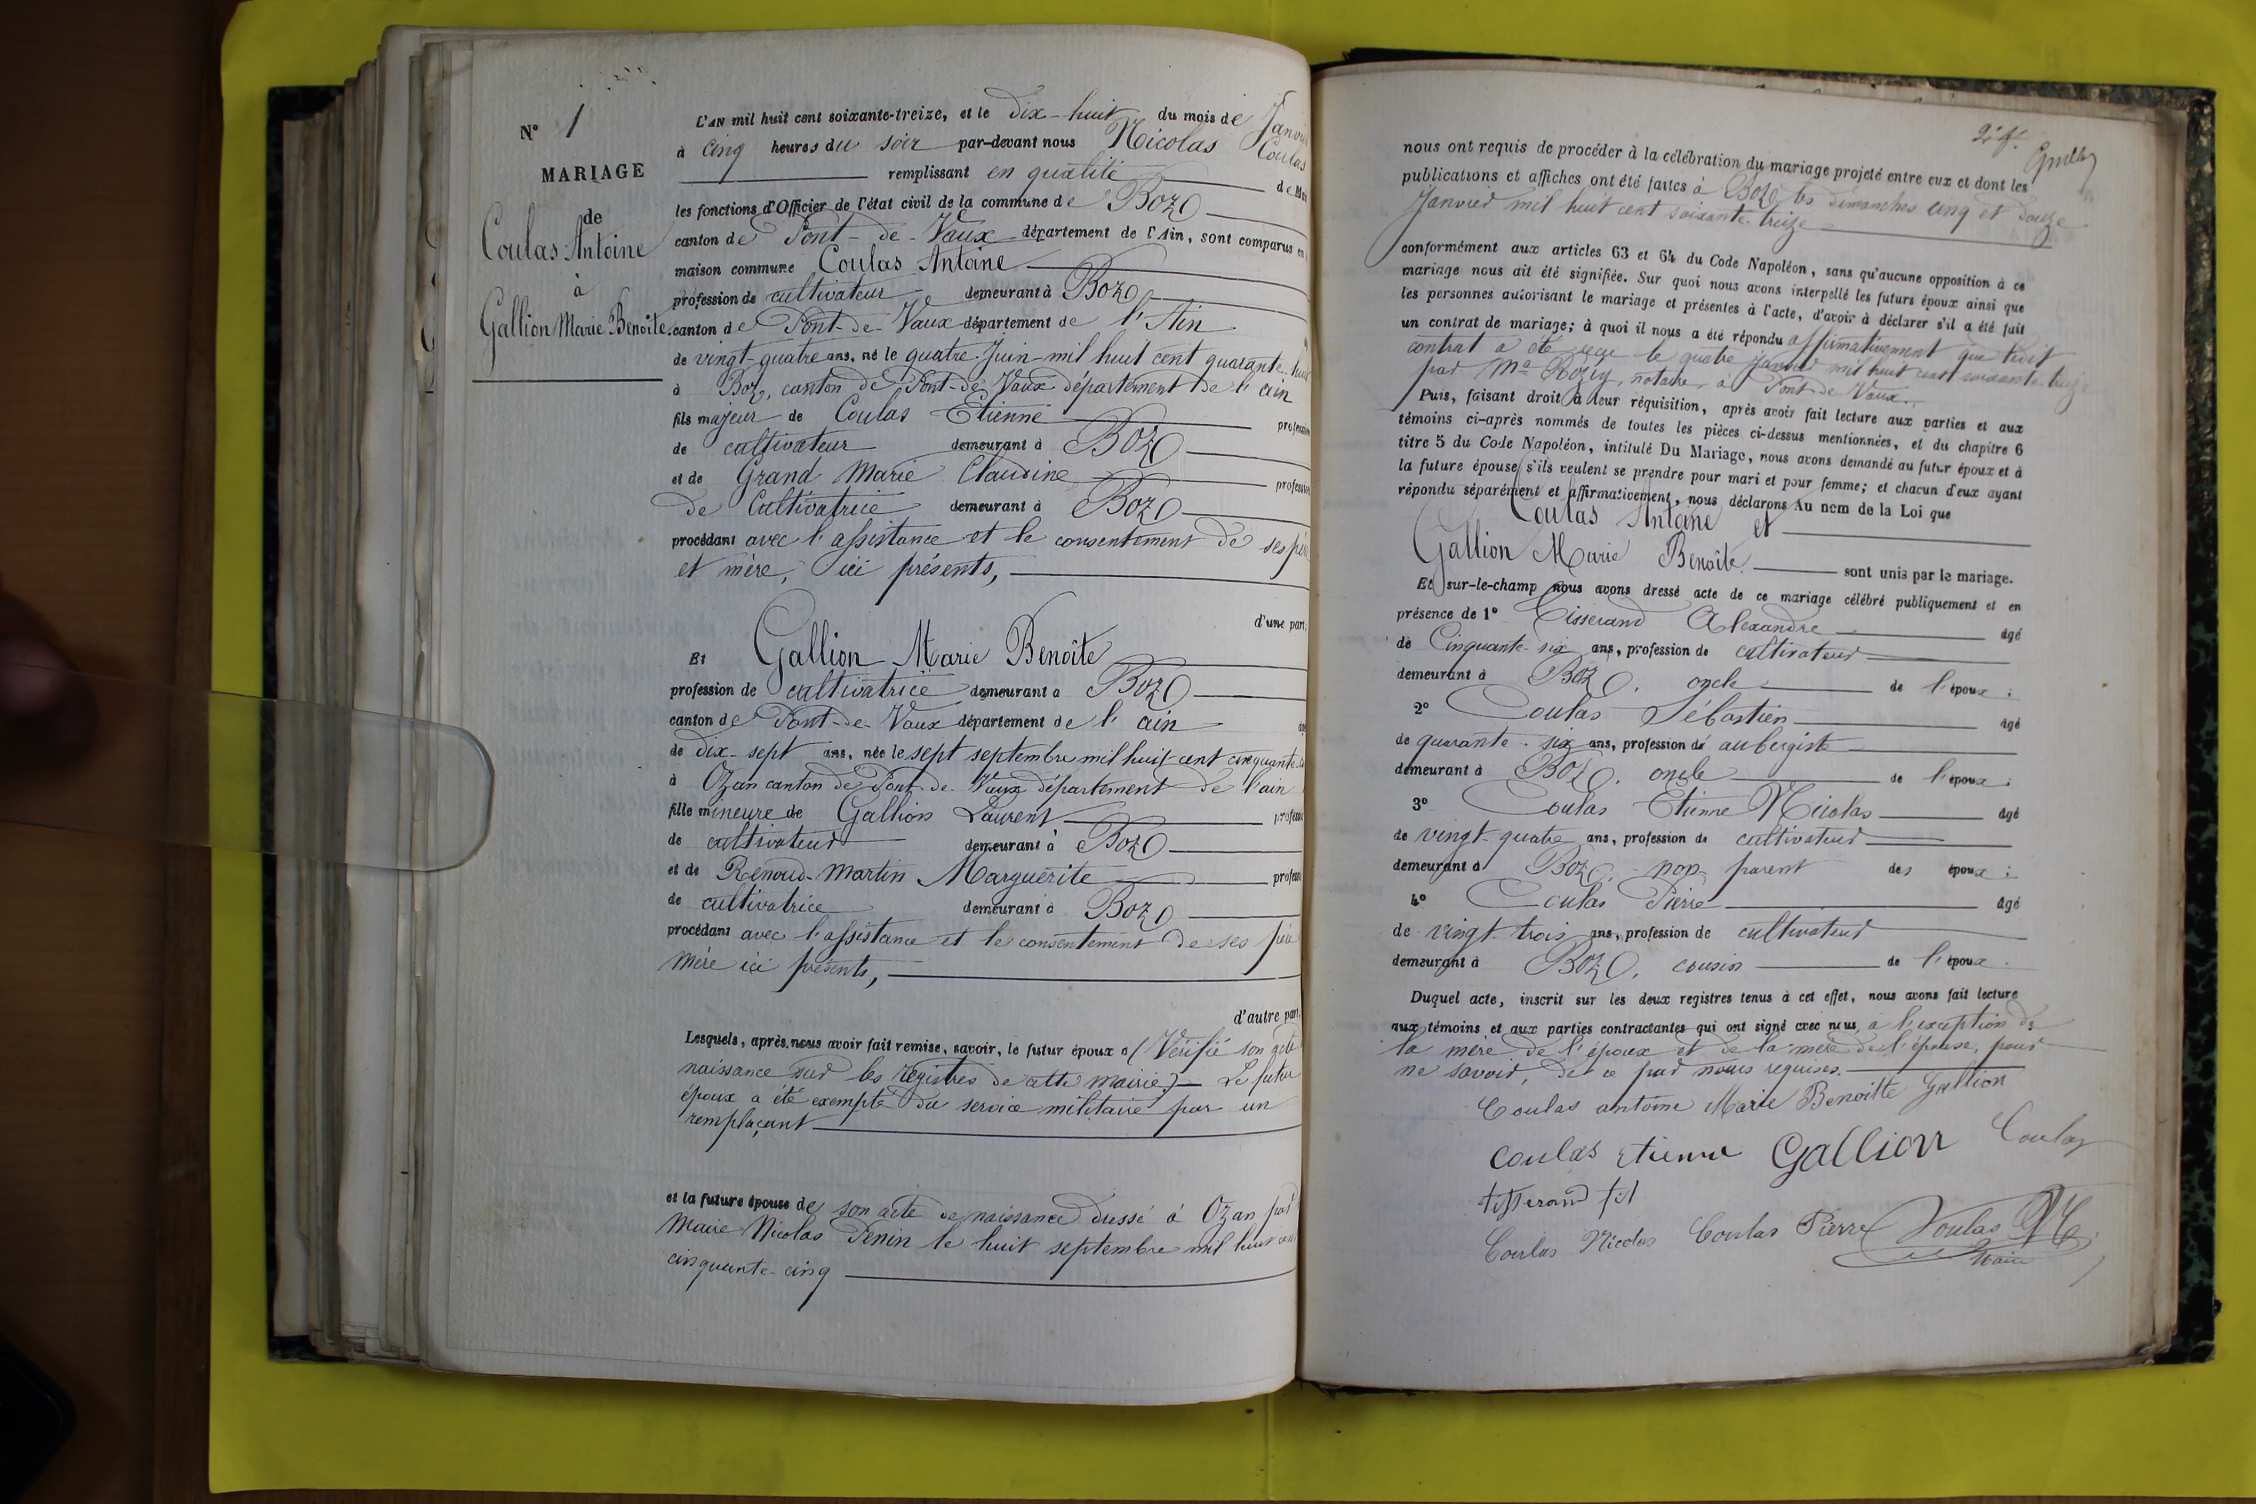 N° 1
MARIAGE
de
Coulas Antoine
à
Gallion Marie Benoîte.
L'AN mil huit cent soixante-treize, et le dix-huit du mois de Janvier
à cinq heures du soir par-devant nous Nicolas Coulas
remplissant en qualité de
les fonctions d'Officier de l'état civil de la commune de Boz
canton de Pont-de-Vaux département de l'Ain, sont comparus en
maison commune Coulas Antoine
profession de cultivateur demeurant à Boz
canton de Pont-de-Vaux département de l'Ain
de vingt-quatre ans, né le quatre Juin mil huit cent quarante-huit
à Boz, canton de Pont-de-Vaux département de l'ain
fils majeur de Coulas Etienne profession
de cultivateur demeurant à Boz
et de Grand Marie Claudine profession
de Cultivatrice demeurant à Boz
procédant avec l'assistance et le consentement de ses père
et mère, ici présents,
d'une part.
Et Gallion Marie Benoîte
profession de cultivatrice demeurant à Boz
canton de Pont-de-Vaux département de l'ain
de dix-sept ans, née le sept septembre mil huit cent cinquante
à Ozan canton de Pont-de-Vaux département de l'ain
fille mineure de Gallion Laurent
de cultivateur demeurant à Boz
et de Renoud-Martin Marguerite
de cultivatrice demeurant à Boz
procédant avec l'assistance et le consentement de ses père
mère ici présents,
d'autre part.
Lesquels, après nous avoir fait remise, savoir, le futur époux a (Vérifié son acte
naissance sur les registres de cette mairie.) Le futur
époux a été exempté du service militaire par un
remplaçant
et la future épouse de son acte de naissance dressé à Ozan par
Maire Nicolas le huit septembre mil huit cent
cinquante-cinq
nous ont requis de procéder à la célébration du mariage projeté entre eux et dont les
publications et affiches ont été faites à Boz les dimanches cinq et douze
Janvier mil huit cent soixante-treize
conformément aux articles 63 et 64 du Code Napoléon, sans qu'aucune opposition à ce
mariage nous ait été signifiée. Sur quoi nous avons interpellé les futurs époux ainsi que
les personnes autorisant le mariage et présentes à l'acte, d'avoir à déclarer s'il a été fait
un contrat de mariage; à quoi il nous a été répondu affirmativement que ledit
contrat a été reçu le quatre Janvier mil huit cent soixante-treize
par Me notaire à Pont-de-Vaux.
Puis, faisant droit à leur réquisition, après avoir fait lecture aux parties et aux
témoins ci-après nommés de toutes les pièces ci-dessus mentionnées, et du chapitre 6
titre 5 du Code Napoléon, intitulé Du Mariage, nous avons demandé au futur époux et à
la future épouse s'ils veulent se prendre pour mari et pour femme; et chacun d'eux ayant
répondu séparément et affirmativement, nous déclarons Au nom de la Loi que
Coulas Antoine et
Gallion Marie Benoîte sont unis par le mariage.
Et sur-le-champ nous avons dressé acte de ce mariage célébré publiquement et en
présence de 1° Tisserand Alexandre âgé
de Cinquante-six ans, profession de cultivateur
demeurant à Boz, oncle de l'époux;
2° Coulas Sébastien âgé
de quarante-six ans, profession de aubergiste
demeurant à Boz, oncle de l'époux;
3° Coulas Etienne Nicolas âgé
de vingt-quatre ans, profession de cultivateur
demeurant à Boz, non parent des époux;
4° Coulas Pierre âgé
de vingt-trois ans, profession de cultivateur
demeurant à Boz, cousin de l'époux.
Duquel acte, inscrit sur les deux registres tenus à cet effet, nous avons fait lecture
aux témoins et aux parties contractantes qui ont signé avec nous, à l'exception de
la mère de l'époux et de la mère de l'épouse, pour
ne savoir, de ce par nous requises.
Coulas antoine Marie Benoitte Gallion
Coulas Etienne Gallion Coulas
Coulas Nicolas Coulas Pierre Coulas
Maire